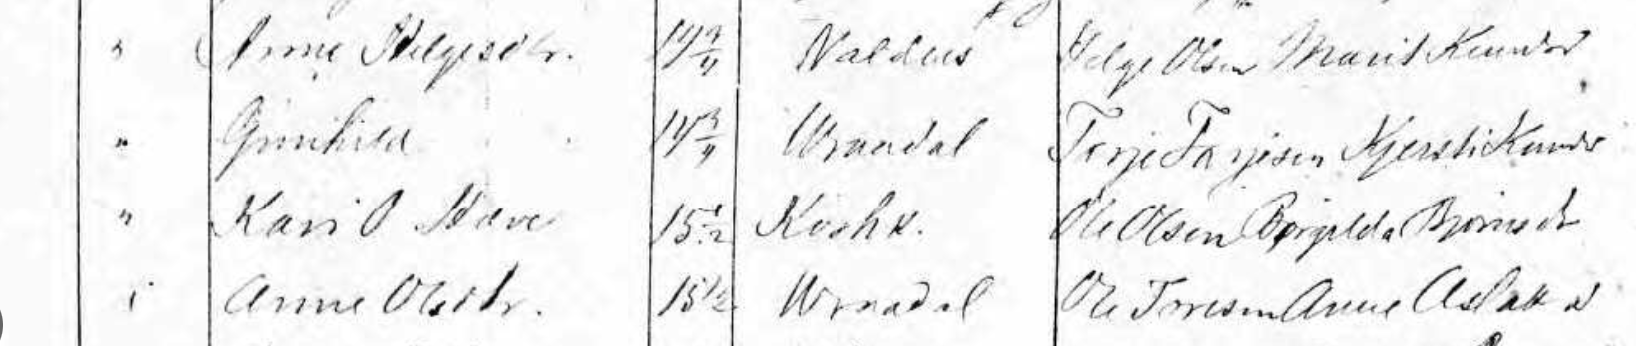 " Anne Helgesdtr. 14 3/4 Valdres Helge Olsen Marit Knudsd
" Gunhild " 14 3/4 Wraadal Torje Torjesen Kjersti Knudsd
" Kari O 15 1/2 Ole Olsen Bjørnsdtr
" Anne Olsdtr. 15 1/2 Wraadal Ole Anne Aslaksd